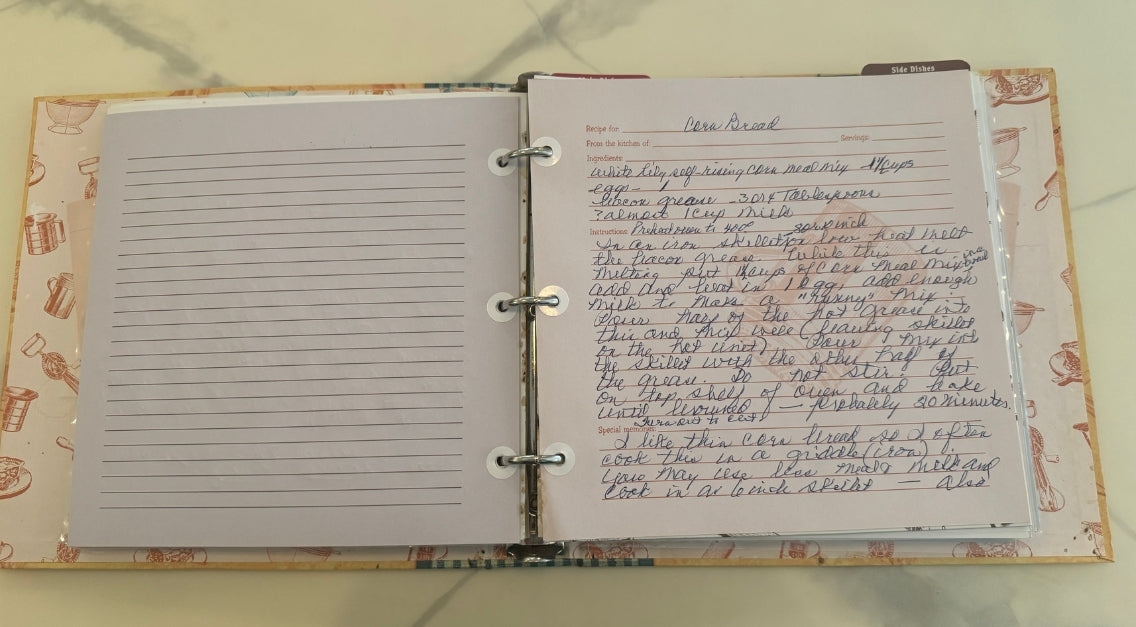 Side Dishes
Recipe for: Corn Bread
From the kitchen of: Servings:
Ingredients:
White Lily self-rising corn meal mix 1½ cups
eggs - 1
bacon grease - 3 or 4 Tablespoons
? almost 1 cup milk
Instructions: Preheat oven to 400°
In an iron skillet on low heat melt
the bacon grease. While this is
melting put 1½ cups of corn meal mix in a bowl
add and beat in 1 egg, add enough
milk to make a "runny" mix -
Pour half of the hot grease into
this and mix well (leaving skillet
on the hot unit) Pour mix into
the skillet with the other half of
the grease. Do not stir. Put
on top shelf of oven and bake
until browned — probably 20 minutes.
Turn out to eat.
Special memories:
I like thin corn bread so I often
cook this in a griddle (iron).
You may use less meal & milk and
cook in a 6 inch skillet — also